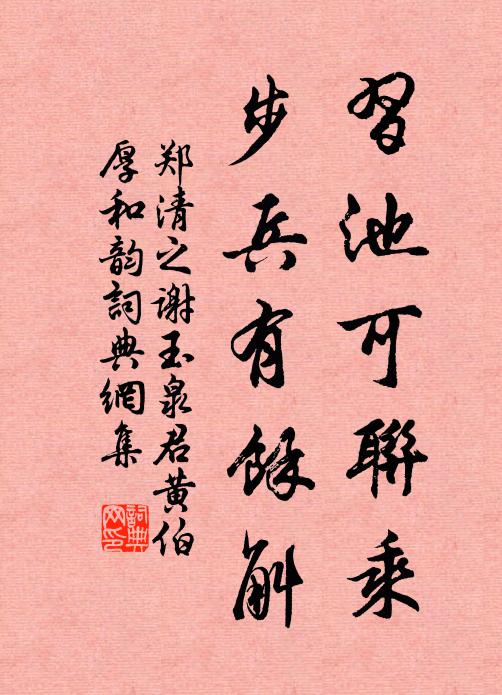 習池可聯乘
步兵有餘斛
郑清之谢玉泉君黄伯
厚和韵詞典網集
詞典网印